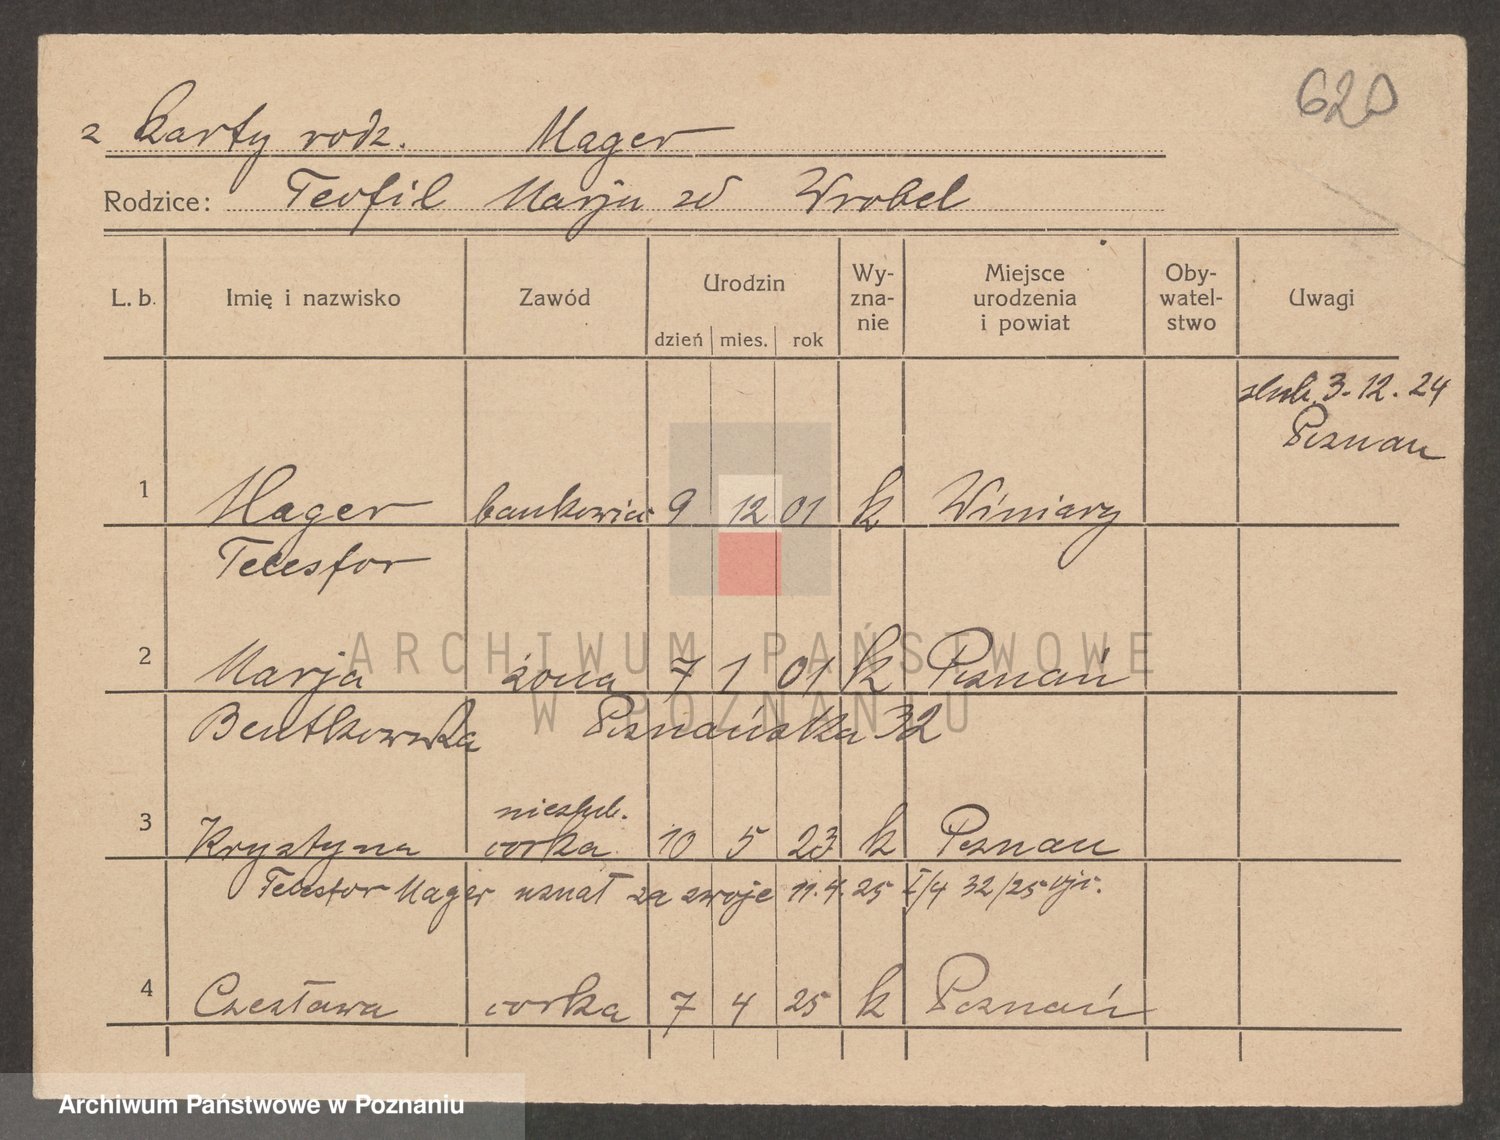 620
z Karty rodz. Mager
Rodzice: Teofil Marja zd Wrobel
L. b. Imię i nazwisko Zawód Urodzin Wy-zna-nie Miejsce urodzenia i powiat Oby-watel-stwo Uwagi
dzień mies. rok
ślub. 3. 12. 24
Poznan
1 Mager bankowiec 9 12 01 k Winiary
Telesfor
2 Marja żona 7 1 01 k Poznań
Bentkowska Poznańska 32
nieślub.
3 Krystyna corka 10 5 23 k Poznan
Telesfor Mager uznał za swoje 11. 4. 25 I/4 32/25
4 Czesława corka 7 4 25 k Poznań
ARCHIWUM PAŃSTWOWE
W POZNANIU
Archiwum Państwowe w Poznaniu